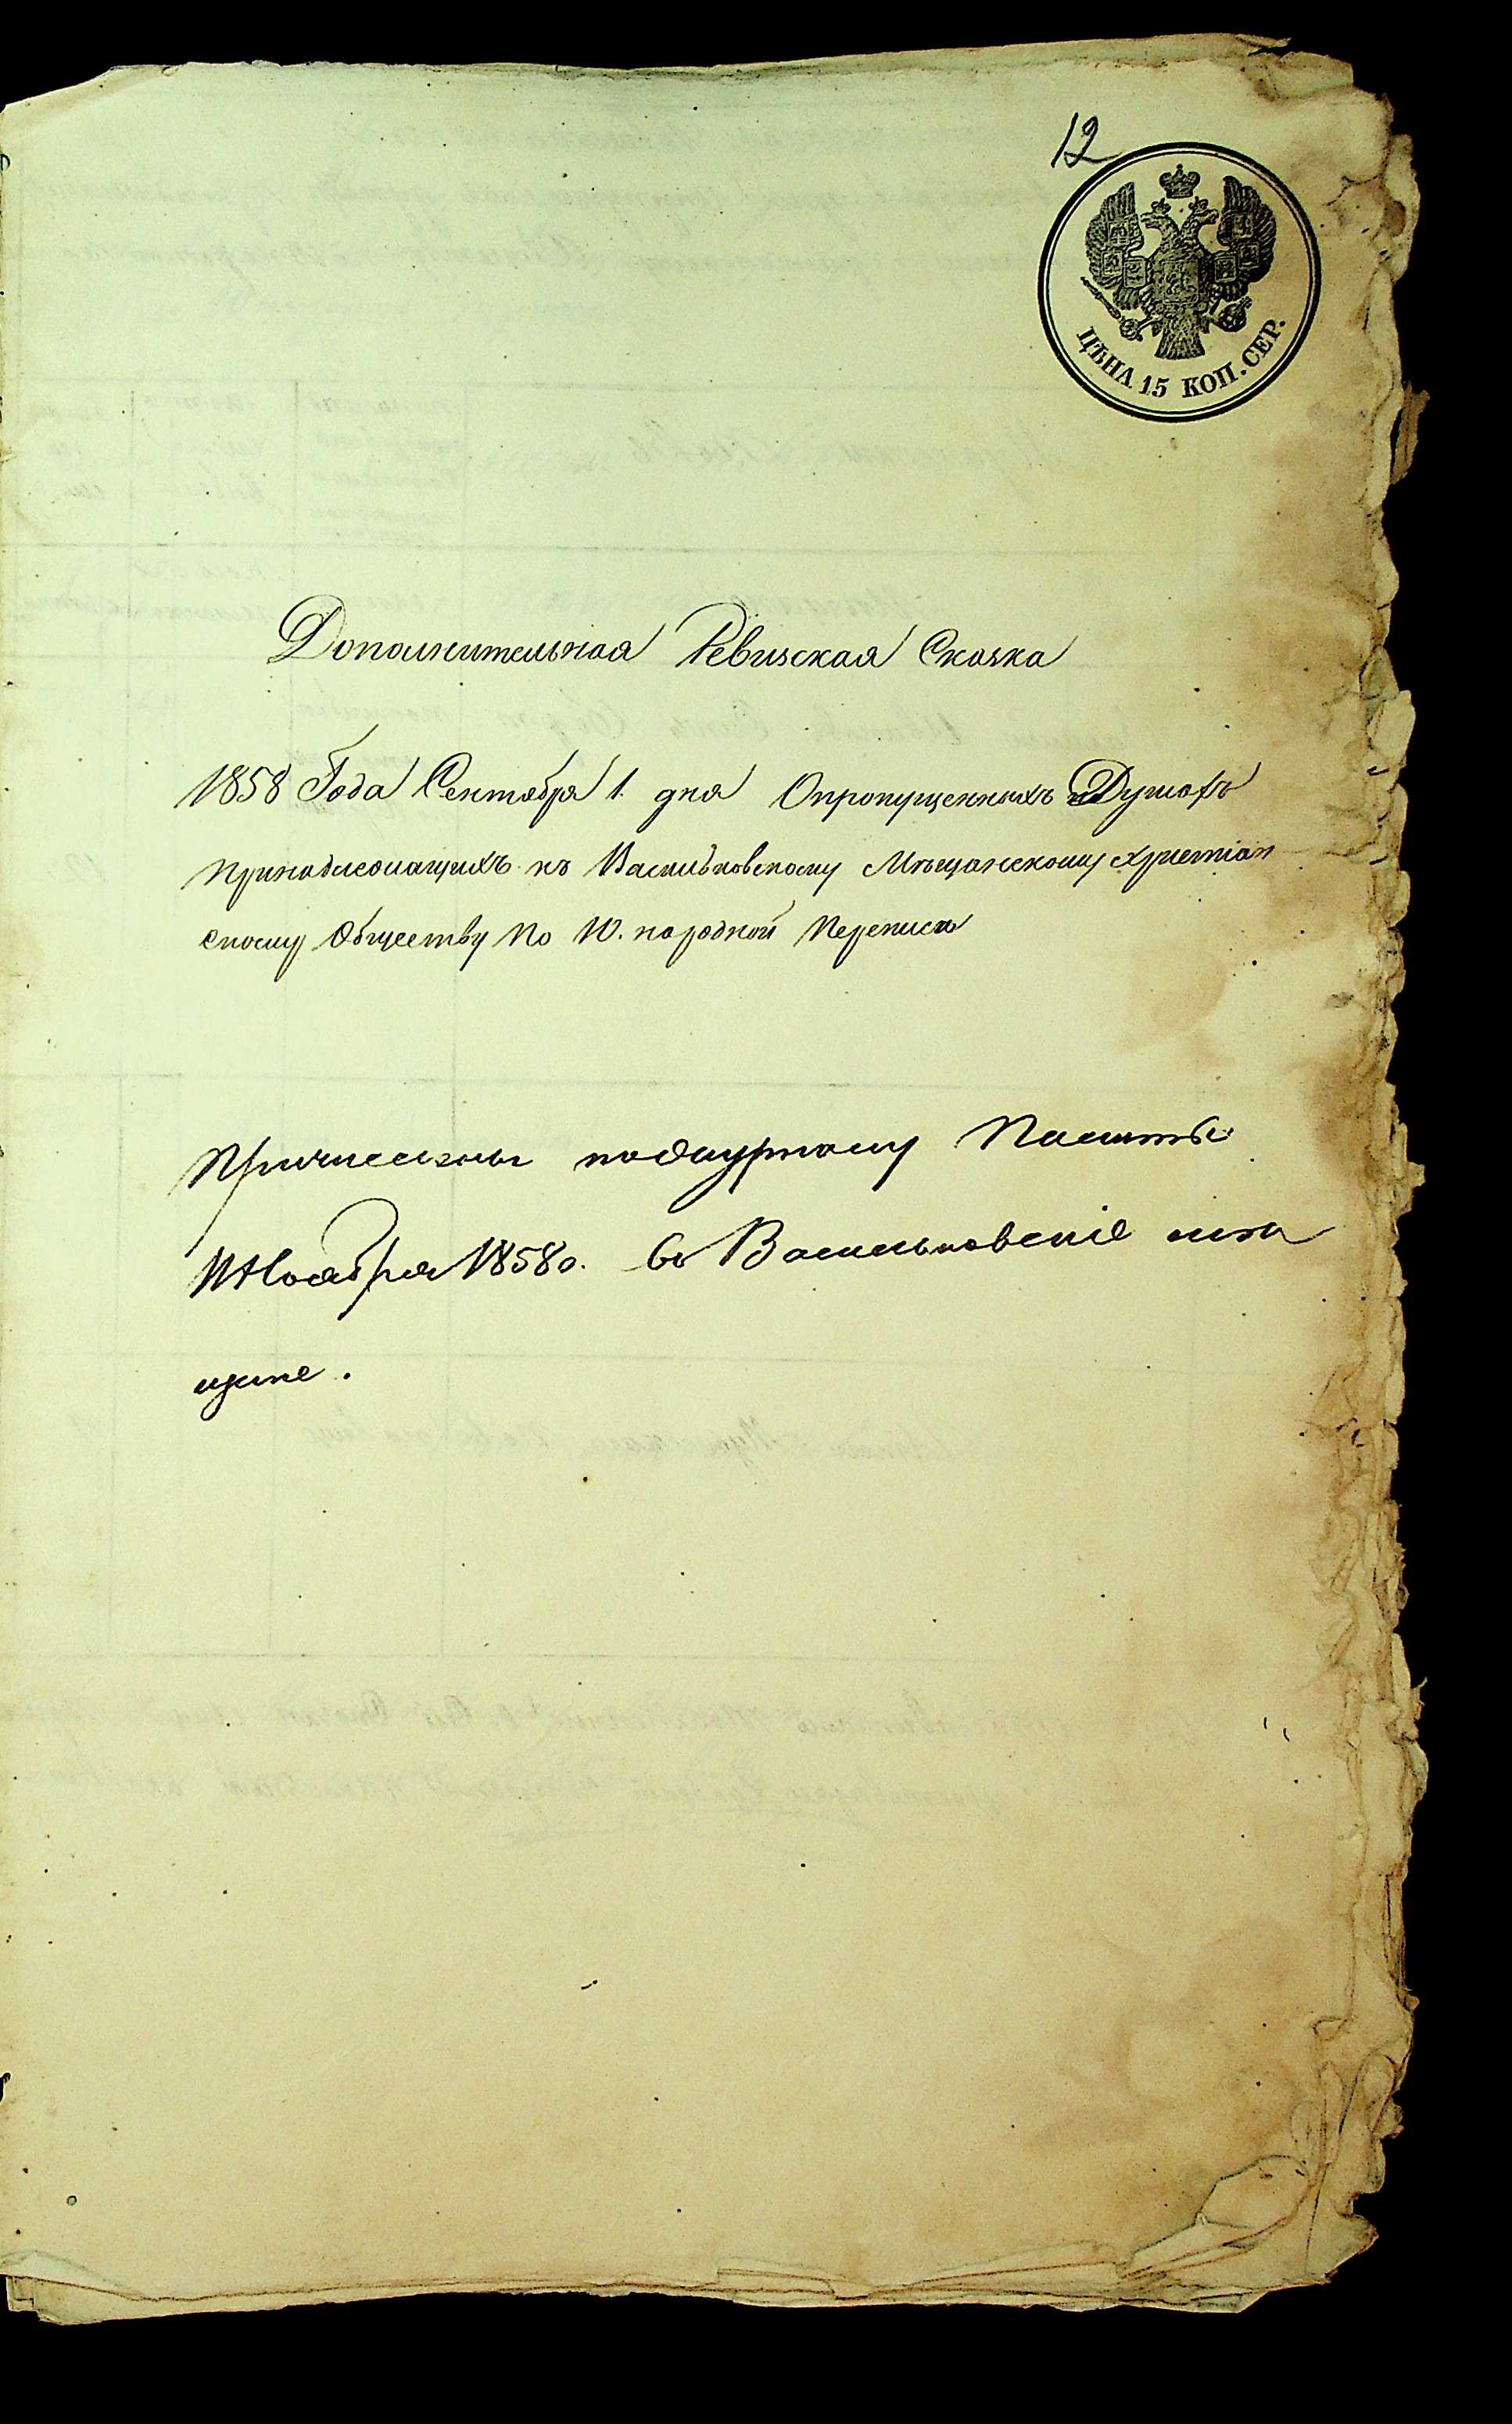 12
ЦѢНА 15 КОП. СЕР.
Дополнительная Ревизская Сказка
1858 Года Сентября 1. дня О пропущенныхъ Душахъ
принадлежащихъ къ Васильковскому Мѣщанскому христіан
скому Обществу по 10. народной Переписи
Причислены по журналу Палаты
Ноября 1858 г. въ Васильковскіе мѣ
щане.